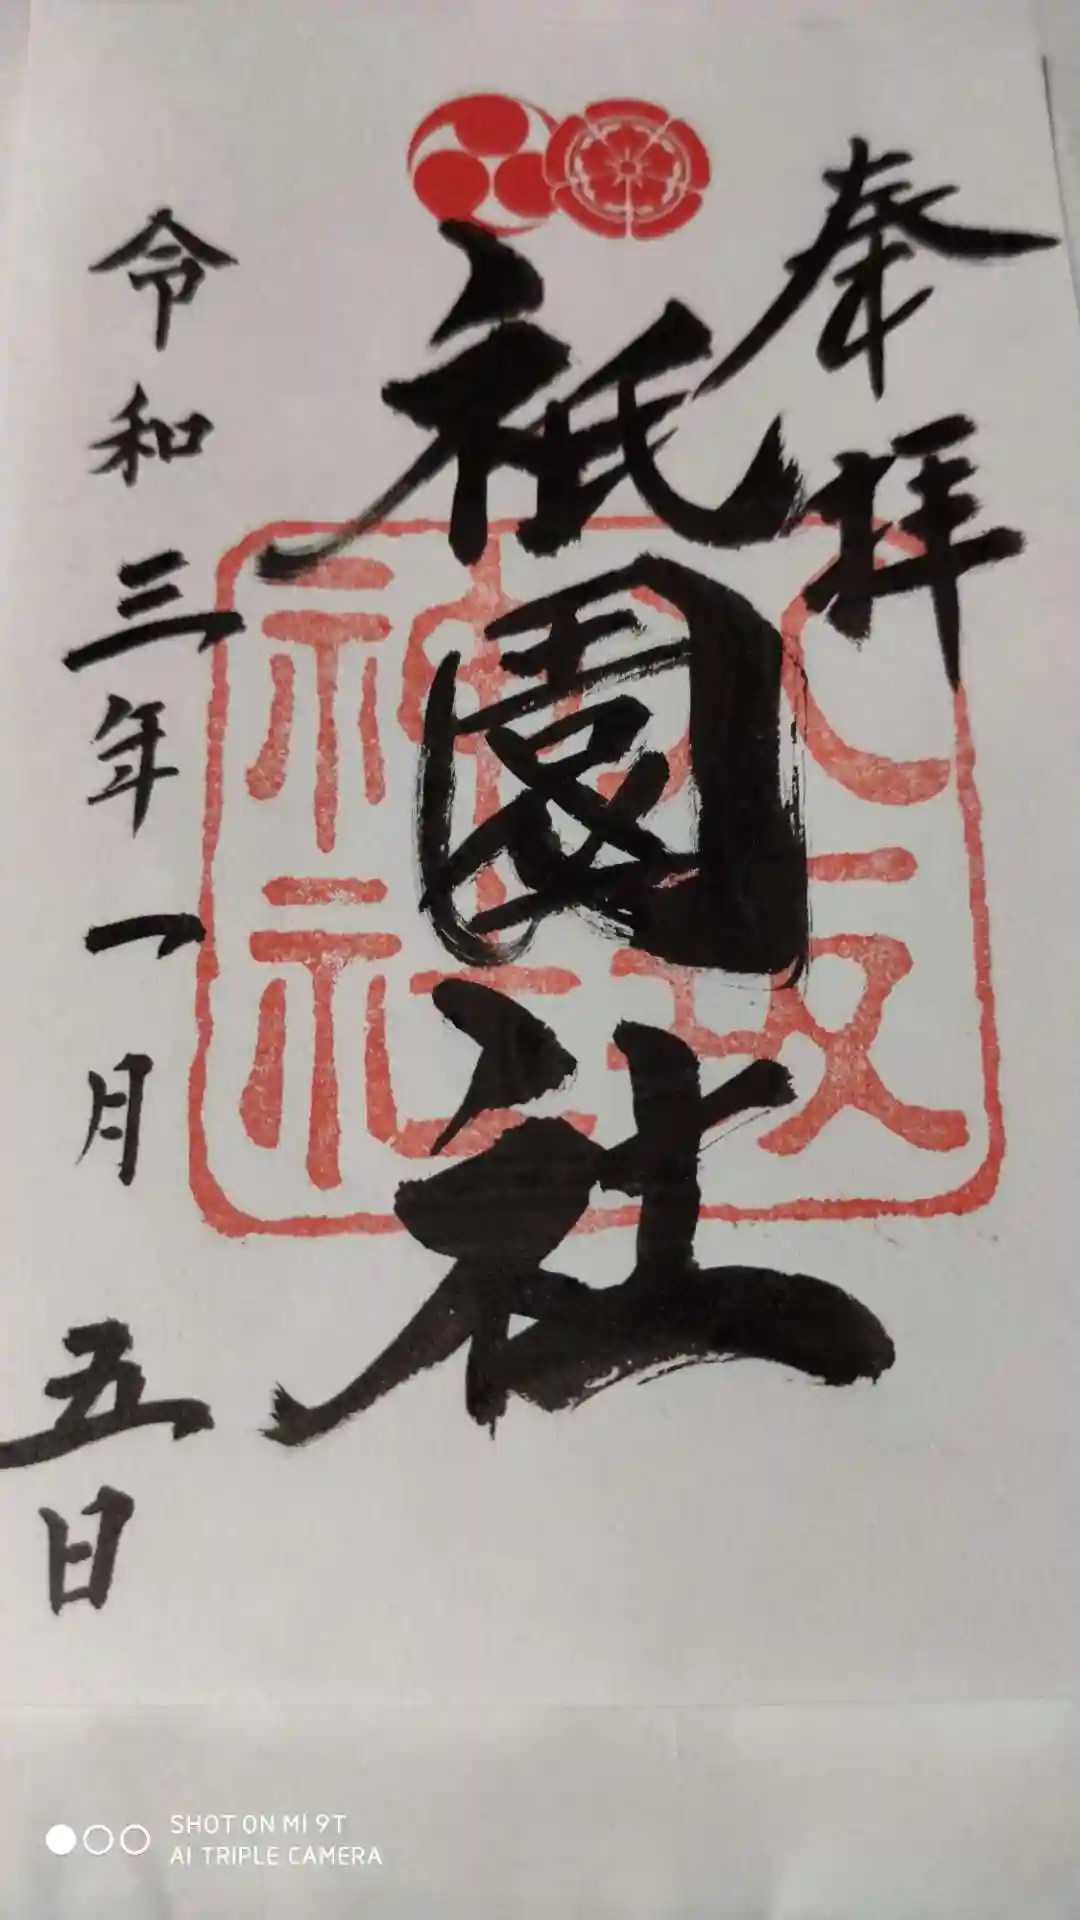 奉拝
祇園社
八坂神社
令和三年一月五日
SHOT ON MI 9T
AI TRIPLE CAMERA